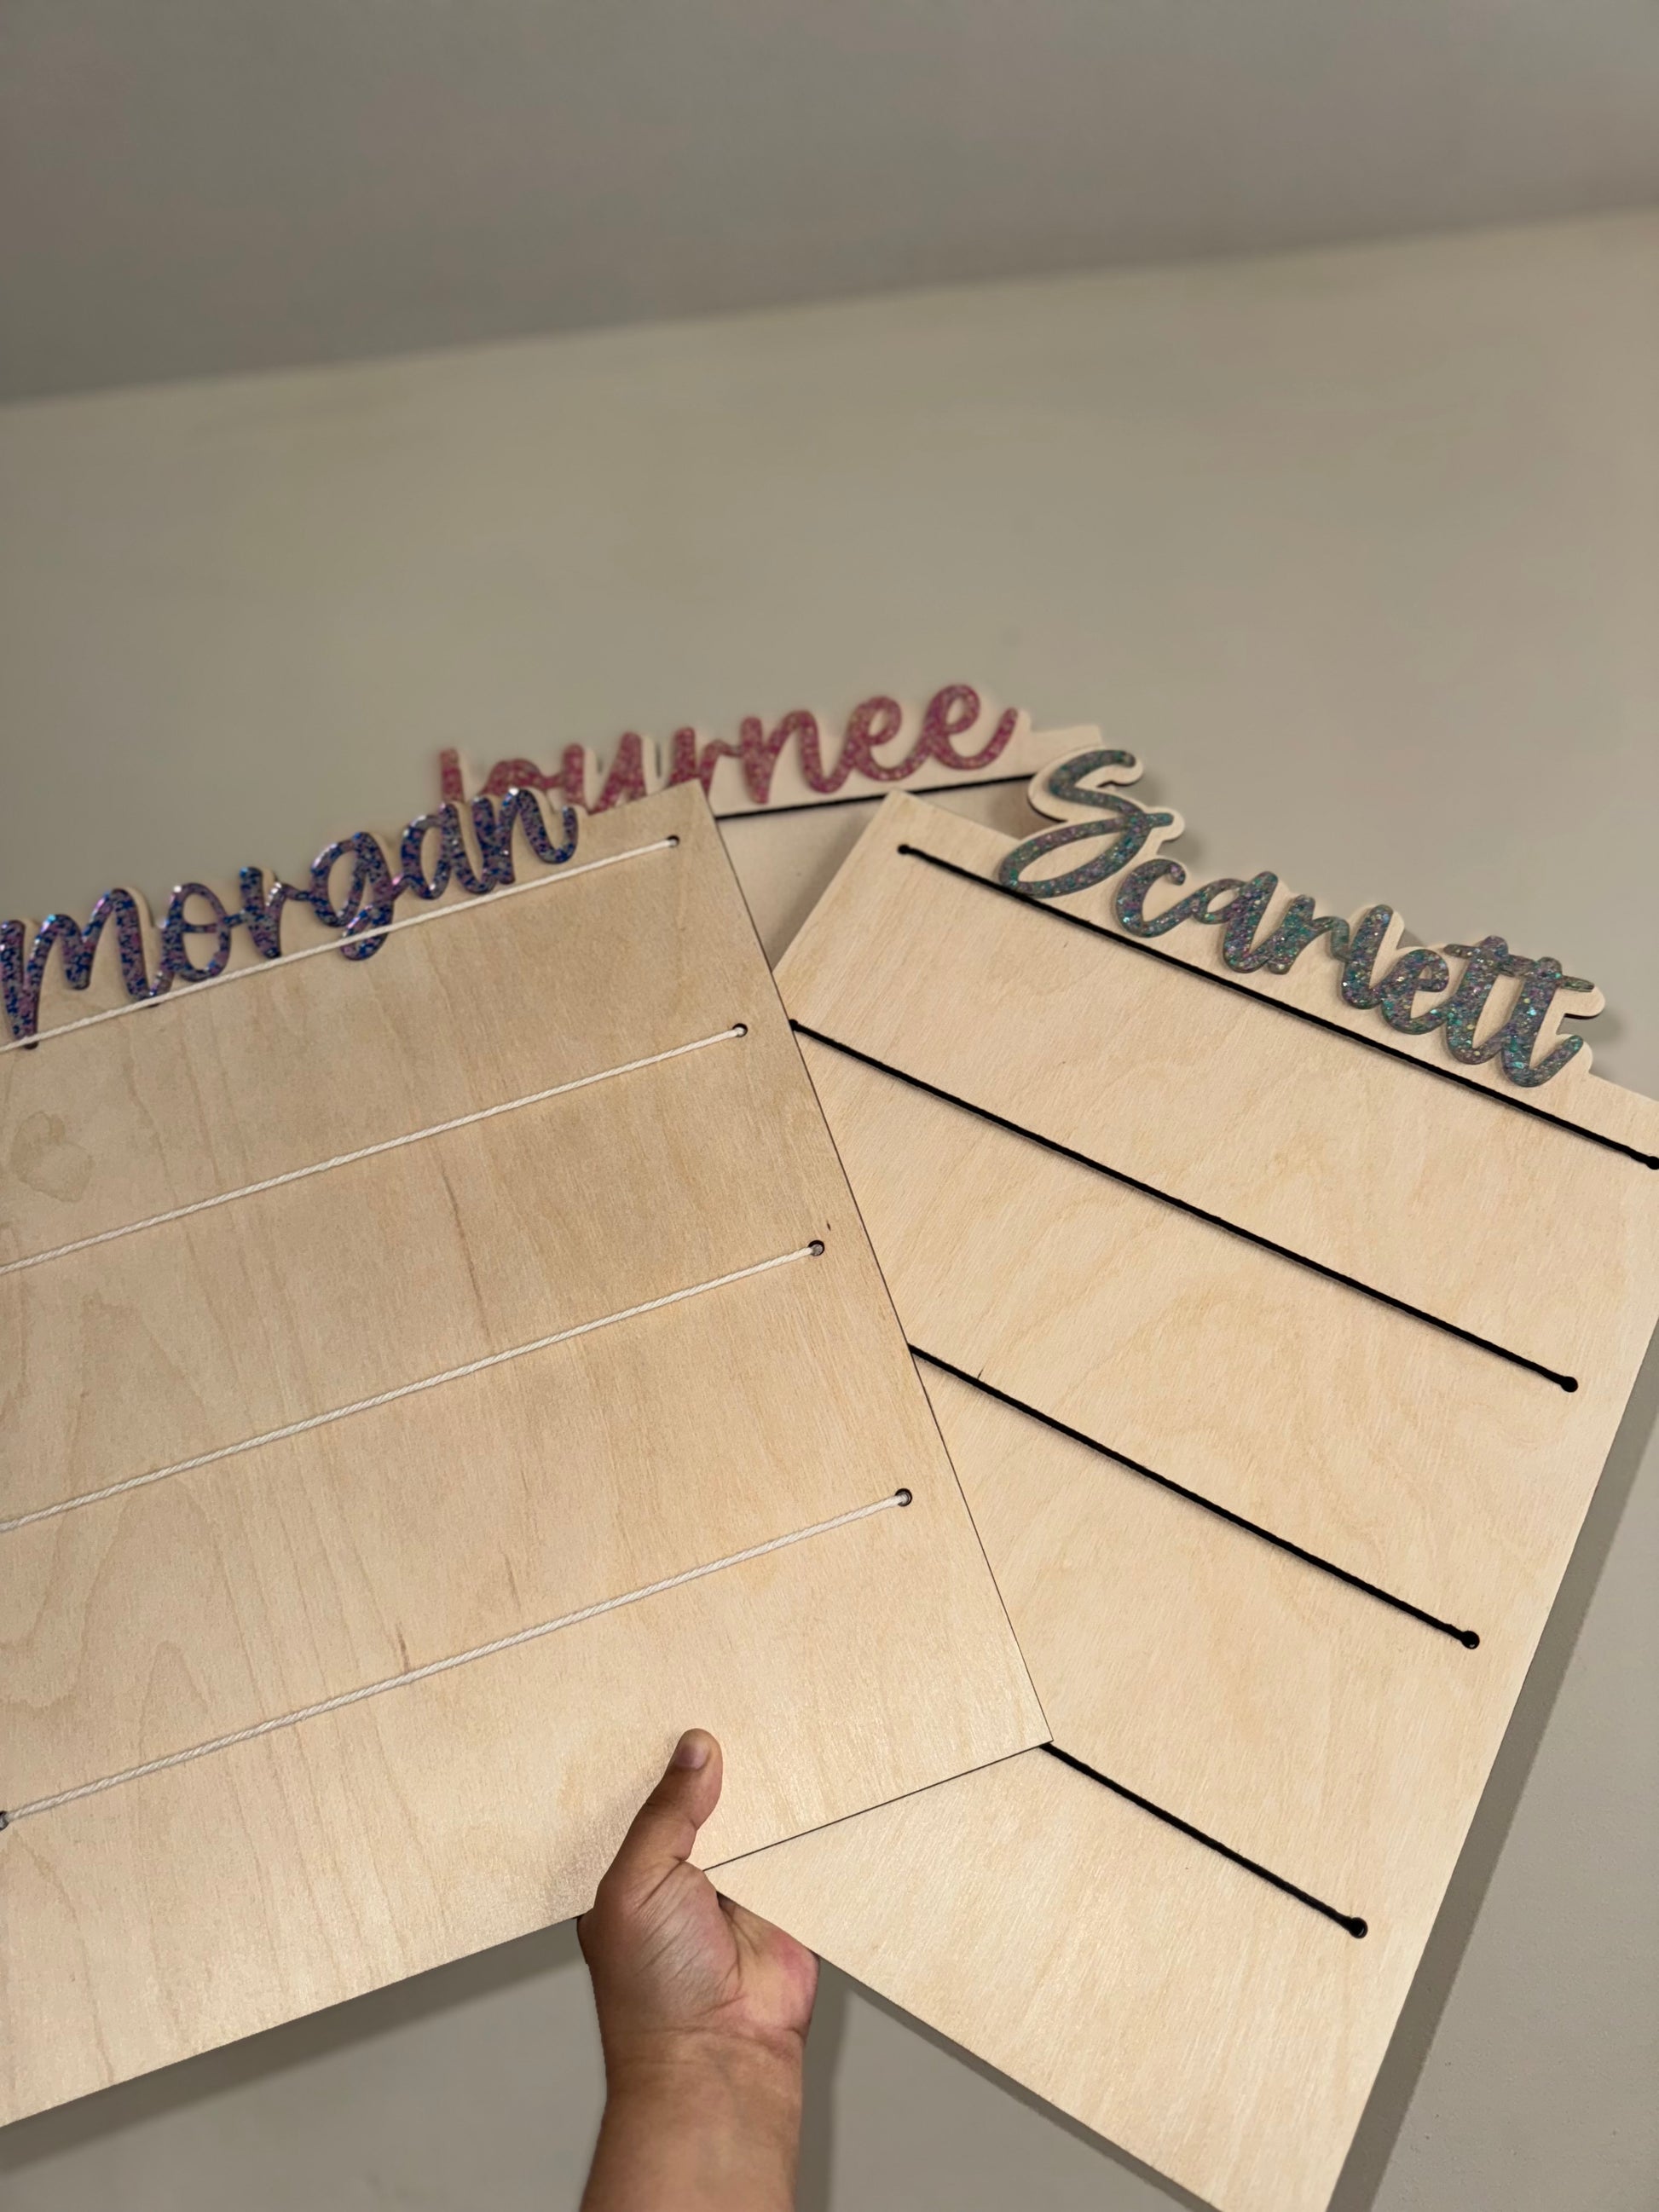 Journee
morgan
Scarlett